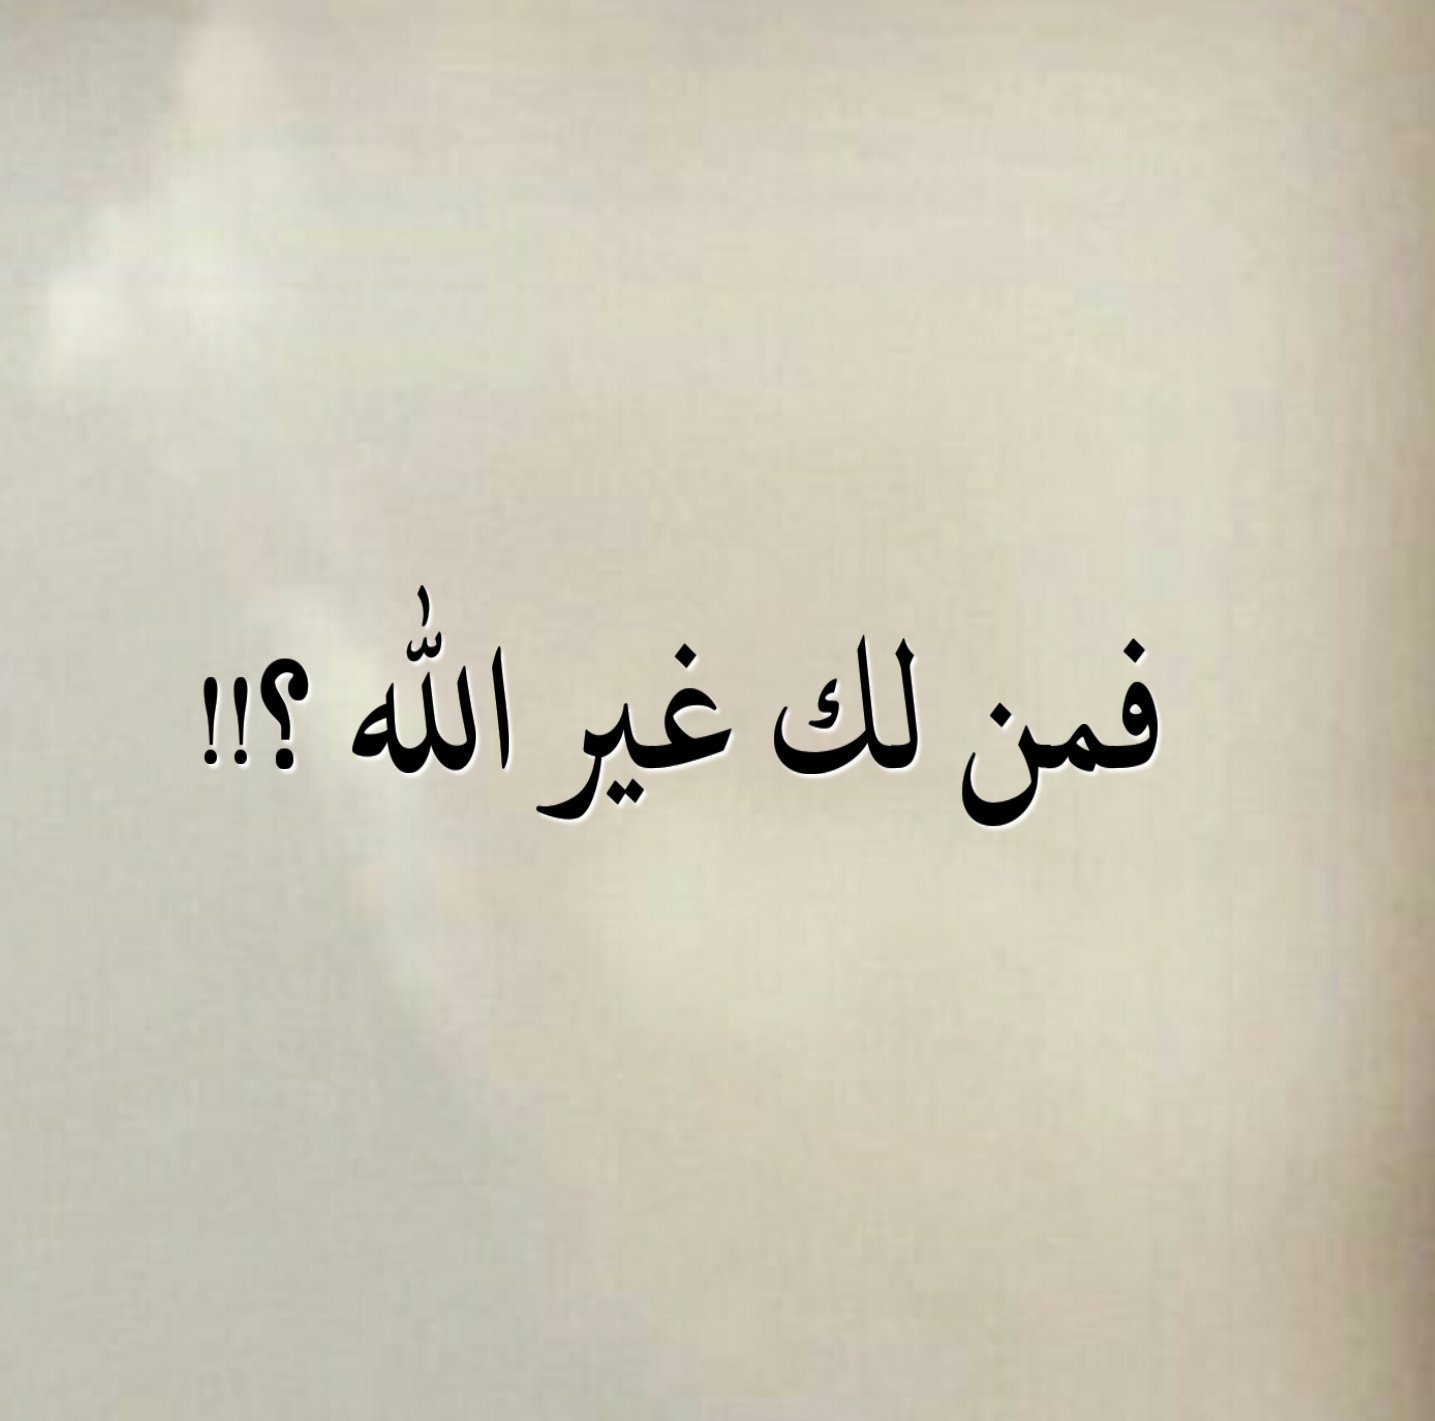 فمن لك غير الله ؟!!